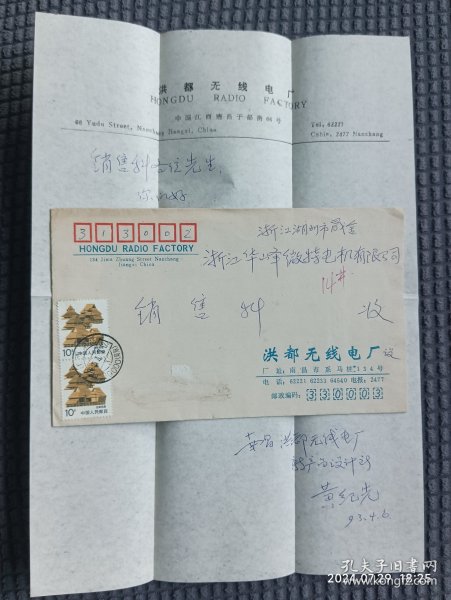 洪都无线电厂
HONGDU RADIO FACTORY
66 Yudu Street, Nanchang Jiangxi, China
Tel. 62221
Cable, 2477 Nanchang
销售科各位先生,
你们好
313002
HONGDU RADIO FACTORY
134 Jisca Zhuang Street Nanchang
Jiangxi China
浙江湖州市
浙江华峰微特电机有限公司
销售科 收
10分 中国人民邮政
10分 中国人民邮政
洪都无线电厂
厂址:南昌市系马桩134号
电话:62221 62233 64540 电报:2477
邮政编码:330003
南昌洪都无线电厂
黄纪光
93.4.6
孔夫子旧书网
2024.07.29 18:25